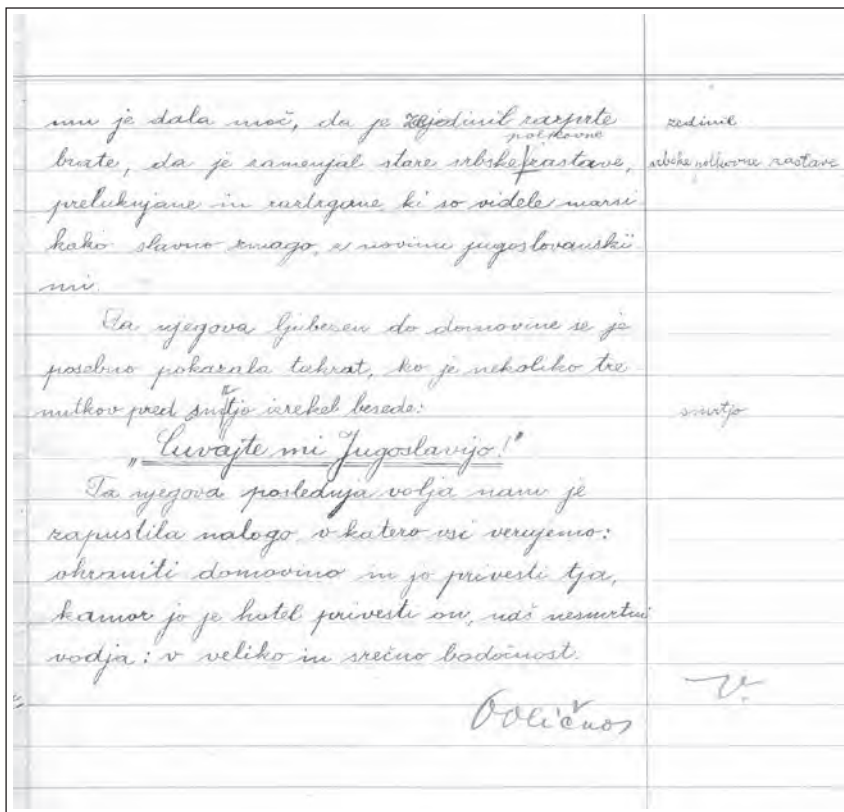 mu je dala moč, da je zedinil razprte zedinil
polkovne
brate, da je zamenjal stare srbske zastave, srbske polkovne zastave
preluknjane in raztrgane, ki so videle marsi
kako slavno zmago, z novimi jugoslovanski
mi.
Ta njegova ljubezen do domovine se je
posebno pokazala takrat, ko je nekoliko tre
nutkov pred smrtjo izrekel besede: smrtjo
„Čuvajte mi Jugoslavijo!"
Ta njegova poslednja volja nam je
zapustila nalogo, v katero vsi verujemo:
ohraniti domovino in jo privesti tja,
kamor jo je hotel privesti on, naš nesmrtni
vodja: v veliko in srečno bodočnost.
V.